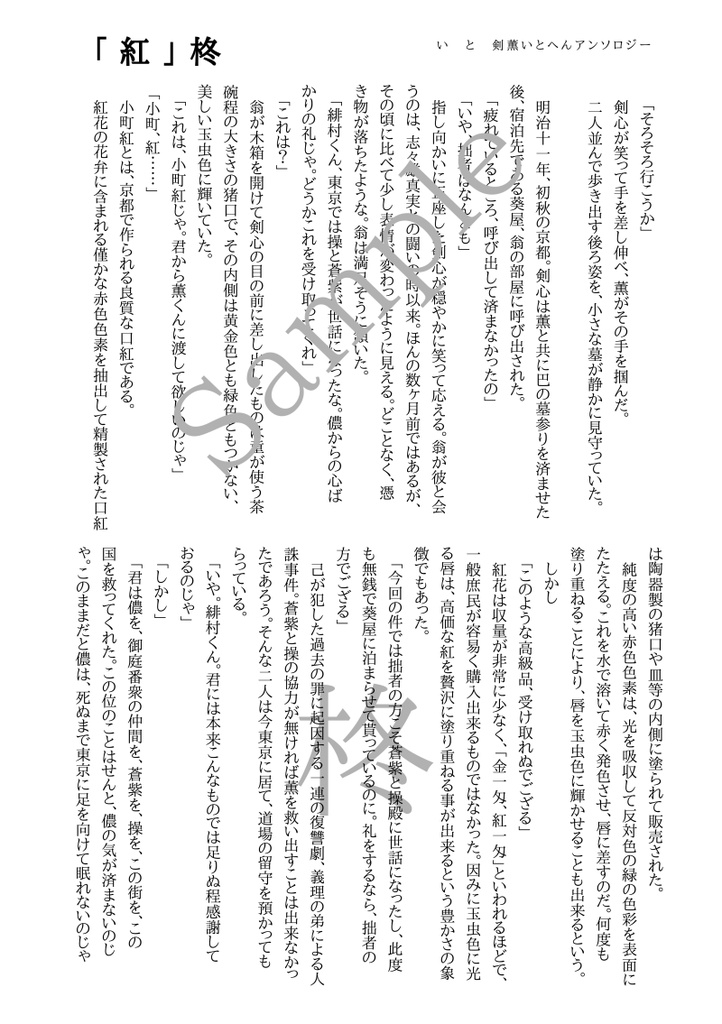 「紅」柊
い と 剣薫いとへんアンソロジー
「そろそろ行こうか」
剣心が笑って手を差し伸べ、薫がその手を掴んだ。
二人並んで歩き出す後ろ姿を、小さな墓が静かに見守っていた。
明治十一年、初秋の京都。剣心は薫と共に巴の墓参りを済ませた
後、宿泊先である葵屋、翁の部屋に呼び出された。
「疲れているところ、呼び出して済まなかったの」
「いや、拙者はなんとも」
指し向かいに正座した剣心が穏やかに笑って応える。翁が彼と会
うのは、志々雄真実との闘いの時以来。ほんの数ヶ月前ではあるが、
その頃に比べて少し表情が変わったように見える。どことなく、憑
き物が落ちたような。翁は満足そうに頷いた。
「緋村くん、東京では操と蒼紫が世話になったな。儂からの心ば
かりの礼じゃ。どうかこれを受け取ってくれ」
「これは？」
翁が木箱を開けて剣心の目の前に差し出したものは童が使う茶
碗程の大きさの猪口で、その内側は黄金色とも緑色ともつかない、
美しい玉虫色に輝いていた。
「これは、小町紅じゃ。君から薫くんに渡して欲しいのじゃ」
「小町、紅……」
小町紅とは、京都で作られる良質な口紅である。
紅花の花弁に含まれる僅かな赤色色素を抽出して精製された口紅
は陶器製の猪口や皿等の内側に塗られて販売された。
純度の高い赤色色素は、光を吸収して反対色の緑の色彩を表面に
たたえる。これを水で溶いて赤く発色させ、唇に差すのだ。何度も
塗り重ねることにより、唇を玉虫色に輝かせることも出来るという。
しかし
「このような高級品、受け取れぬでござる」
紅花は収量が非常に少なく、「金一匁、紅一匁」といわれるほどで、
一般庶民が容易く購入出来るものではなかった。因みに玉虫色に光
る唇は、高価な紅を贅沢に塗り重ねる事が出来るという豊かさの象
徴でもあった。
「今回の件では拙者の方こそ蒼紫と操殿に世話になったし、此度
も無銭で葵屋に泊まらせて貰っているのに。礼をするなら、拙者の
方でござる」
己が犯した過去の罪に起因する一連の復讐劇、義理の弟による人
誅事件。蒼紫と操の協力が無ければ薫を救い出すことは出来なかっ
たであろう。そんな二人は今東京に居て、道場の留守を預かっても
らっている。
「いや。緋村くん。君には本来こんなものでは足りぬ程感謝して
おるのじゃ」
「しかし」
「君は儂を、御庭番衆の仲間を、蒼紫を、操を、この街を、この
国を救ってくれた。この位のことはせんと、儂の気が済まないのじ
ゃ。このままだと儂は、死ぬまで東京に足を向けて眠れないのじゃ
Sample
柊